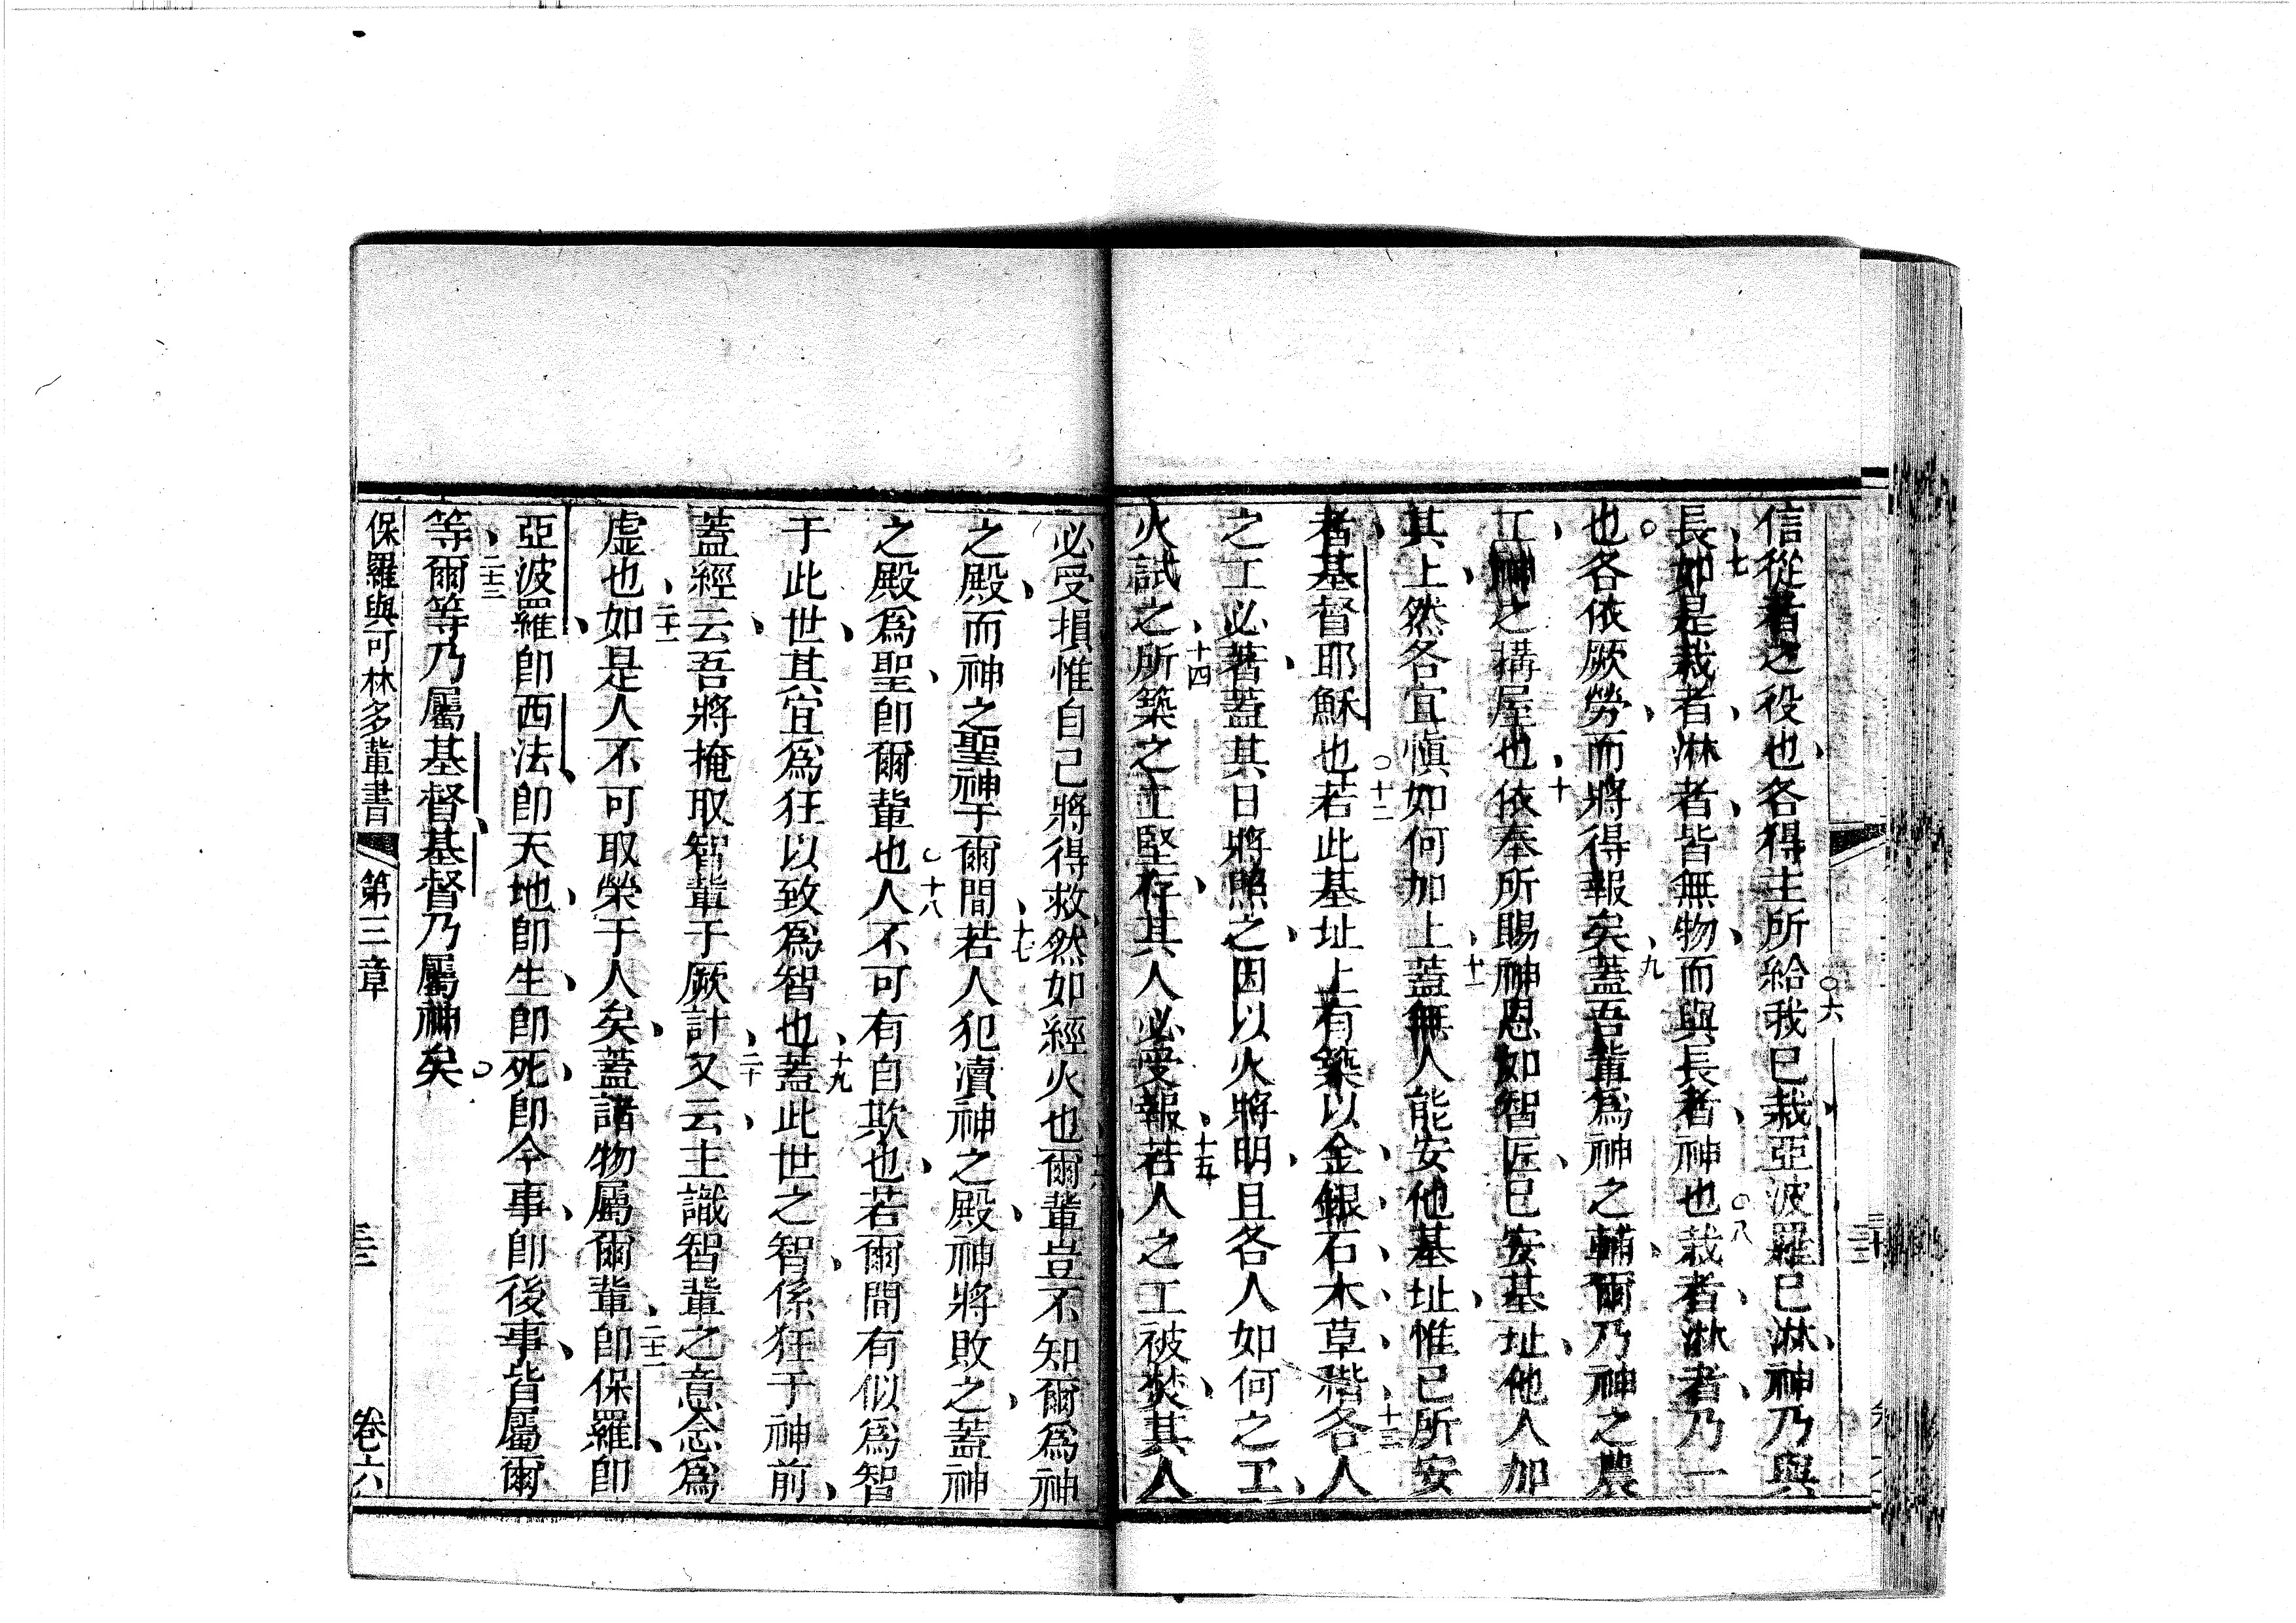 信從者之役也各得主所給我已栽亞波羅已淋神乃與
長如是栽者淋者皆無物而與長者神也栽者淋者乃一
也各依厥勞而將得報矣蓋吾輩為神之輔爾乃神之農
工神之搆屋也依奉所賜神恩如智匠已安基址他人加
其上然各宜慎如何加上蓋無人能安他基址惟已所安
者基督耶穌也若此基址上有築以金銀石木草稭各人
之工必著蓋其日將照之因以火將明且各人如何之工
火試之所築之工堅存其人必受報若人之工被焚其人
必受損惟自己將得救然如經火也爾輩豈不知爾為神
之殿而神之聖神于爾間若人犯瀆神之殿神將敗之蓋神
之殿為聖即爾輩也人不可有自欺也若爾間有似為智
于此世其宜為狂以致為智也蓋此世之智係狂于神前
蓋經云吾將掩取智輩于厥計又云主識智輩之意念為
虛也如是人不可取榮于人矣蓋諸物屬爾輩即保羅即
亞波羅即西法即天地即生即死即今事即後事皆屬爾
等爾等乃屬基督基督乃屬神矣
保羅與可林多輩書 第三章 卷六